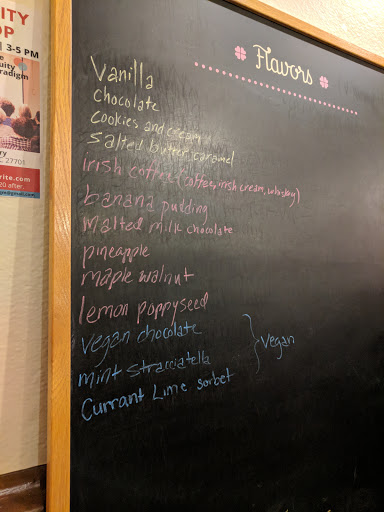 ITY
OP
| 3-5 PM
e
uity
radigm
ry
27701
rite.com
20 after.
Flavors
Vanilla
Chocolate
Cookies and cream
salted butter caramel
irish coffee (coffee, irish cream, whiskey)
banana pudding
malted milk chocolate
pineapple
maple walnut
lemon poppyseed
vegan chocolate
mint stracciatella
Vegan
Currant Lime sorbet